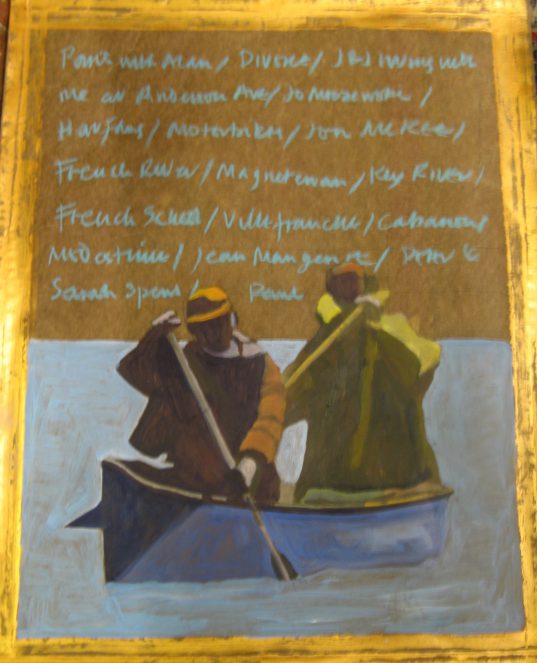 Paris with Alan / Divorce / J & J living with
me at Anderson Ave / Jo Moosewore /
Harfang / Motorbikes / Jon McKee /
French River / Magnetewan / Key River /
French School / Villefranche / Cabanon /
Jean Mangenot / Peter &
Sarah Spens / Paul